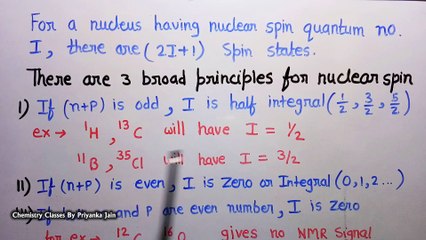 For a nucleus having nuclear spin quantum no.
I, there are (2I+1) Spin states.
There are 3 broad principles for nuclear spin
I) If (n+P) is odd, I is half integral (1/2, 3/2, 5/2)
ex → ¹H, ¹³C will have I = 1/2
¹¹B, ³⁵Cl will have I = 3/2
II) If (n+P) is even, I is Zero or Integral (0,1,2...)
and P are even number, I is zero
for ex → ¹²C ¹⁶O gives no NMR Signal
Chemistry Classes By Priyanka Jain